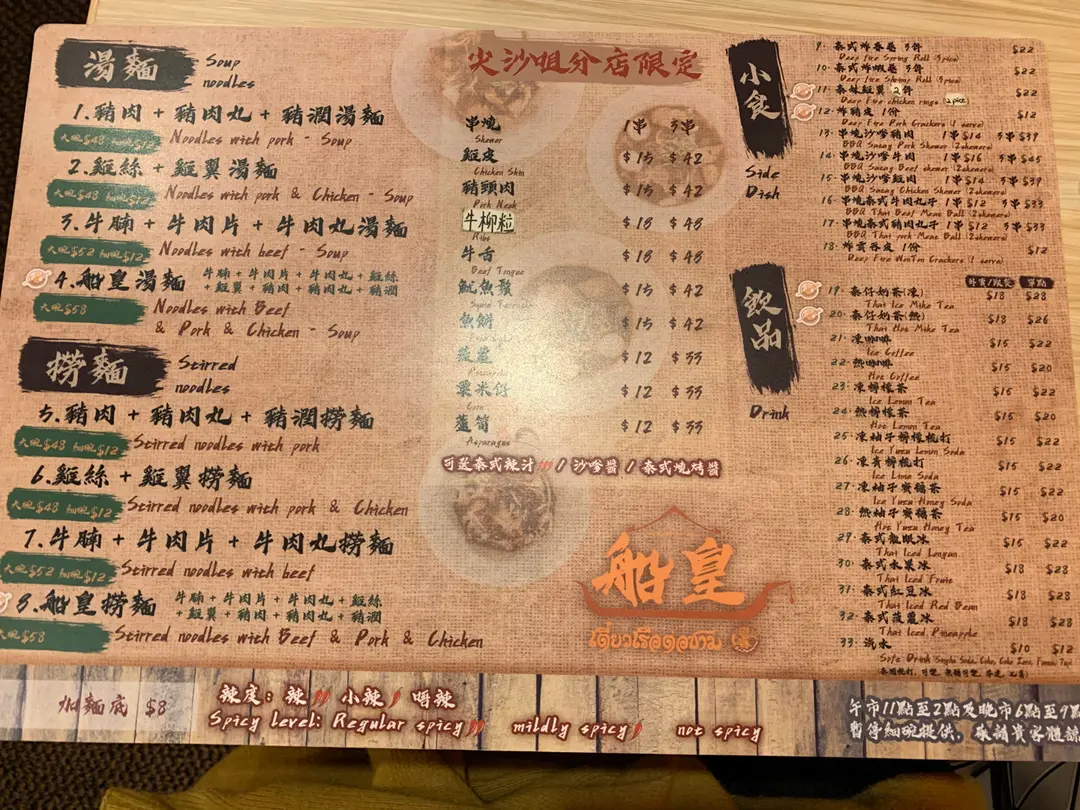 湯麵
Soup
noodles
1.豬肉 + 豬肉丸 + 豬潤湯麵
大碗$48 細碗$12
Noodles with pork - Soup
2.雞絲 + 雞翼湯麵
大碗$48 細碗$12
Noodles with pork & Chicken - Soup
3.牛腩 + 牛肉片 + 牛肉丸湯麵
大碗$52 細碗$12
Noodles with beef - Soup
4.船皇湯麵
牛腩 + 牛肉片 + 牛肉丸 + 雞絲
+ 雞翼 + 豬肉 + 豬肉丸 + 豬潤
大碗$58
Noodles with Beef
& Pork & Chicken - Soup
撈麵
Stirred
noodles
5.豬肉 + 豬肉丸 + 豬潤撈麵
大碗$48 細碗$12
Stirred noodles with pork
6.雞絲 + 雞翼撈麵
大碗$48 細碗$12
Stirred noodles with pork & Chicken
7.牛腩 + 牛肉片 + 牛肉丸撈麵
大碗$52 細碗$12
Stirred noodles with beef
8.船皇撈麵
牛腩 + 牛肉片 + 牛肉丸 + 雞絲
+ 雞翼 + 豬肉 + 豬肉丸 + 豬潤
大碗$58
Stirred noodles with Beef & Pork & Chicken
尖沙咀分店限定
串燒 1串 3串
Skewer
雞皮 $15 $42
Chicken Skin
豬頭肉 $15 $42
Pork Neak
牛柳粒 $18 $48
牛舌 $18 $48
Beef Tongue
魷魚鬚 $15 $42
魚餅 $15 $42
菠蘿 $12 $33
Pineapple
粟米仔 $12 $33
Corn
蘆筍 $12 $33
Asparagus
可選泰式辣汁 / 沙嗲醬 / 泰式燒烤醬
船皇
เตี๋ยวเรือดอชาม
小食
Side
Dish
9· 泰式炸春卷 3件 $22
Deep Fire Spring Roll (3pice)
10· 泰式炸蝦卷 3件 $22
Deep Fire Shrimp Roll (3pice)
11· 泰妹雞翼 2件 $22
Deep Fire chicken rings 2pice
12· 炸豬皮 1份 $12
Deep Fire Pork Crackers (1 serve)
13· 串燒沙嗲豬肉 1串$14 3串$39
BBQ Satay Pork Skewer (2skewers)
14· 串燒沙嗲牛肉 1串$16 3串$45
BBQ Satay Beef skewer (2skewers)
15· 串燒沙嗲雞肉 1串$14 3串$39
BBQ Satay Chicken Skewer (2skewers)
16· 串燒泰式牛肉丸子 1串$12 3串$33
BBQ Thai Beef Meat Ball (2skewers)
17· 串燒泰式豬肉丸子 1串$12 3串$33
BBQ Thai pork Meat Ball (2skewers)
18· 炸雲吞皮 1份 $12
Deep Fire WonTon Crackers (1 serve)
飲品
Drink
外賣/跟餐 單點
19· 泰仔奶茶(凍) $18 $28
Thai Ice Milk Tea
20· 泰仔奶茶(熱) $18 $26
Thai Hot Milk Tea
21· 凍咖啡 $15 $22
Ice Coffee
22· 熱咖啡 $15 $20
Hot Coffee
23· 凍檸檬茶 $15 $22
Ice Lemon Tea
24· 熱檸檬茶 $15 $20
Hot Lemon Tea
25· 凍柚子檸檬梳打 $15 $22
Ice Yuzu Lemon Soda
26· 凍青檸梳打 $15 $22
Ice Lime Soda
27· 凍柚子蜜糖茶 $15 $22
Ice Yuzu Honey Soda
28· 熱柚子蜜糖茶 $15 $20
Hot Yuzu Honey Tea
29· 泰式龍眼冰 $15 $22
Thai Iced Longan
30· 泰式水果冰 $18 $28
Thai Iced Fruit
31· 泰式紅豆冰 $18 $28
Thai Iced Red Bean
32· 泰式菠蘿冰 $18 $28
Thai Iced Pineapple
33· 汽水 $10 $12
加麵底 $8
辣度：辣 小辣 唔辣
Spicy Level: Regular spicy mildly spicy not spicy
午市11點至2點及晚市6點至9點
暫停細碗提供，敬請貴客體諒